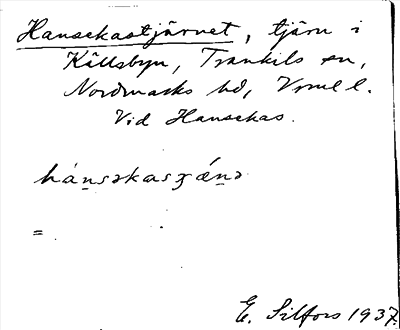 Hansekastjärnet, tjärn i
Källsbyn, Trankils sn,
Nordmarks hd, Vrml l.
Vid Hansekas.
hánsəkasʒǽnə
=
E. Silfors 1937.